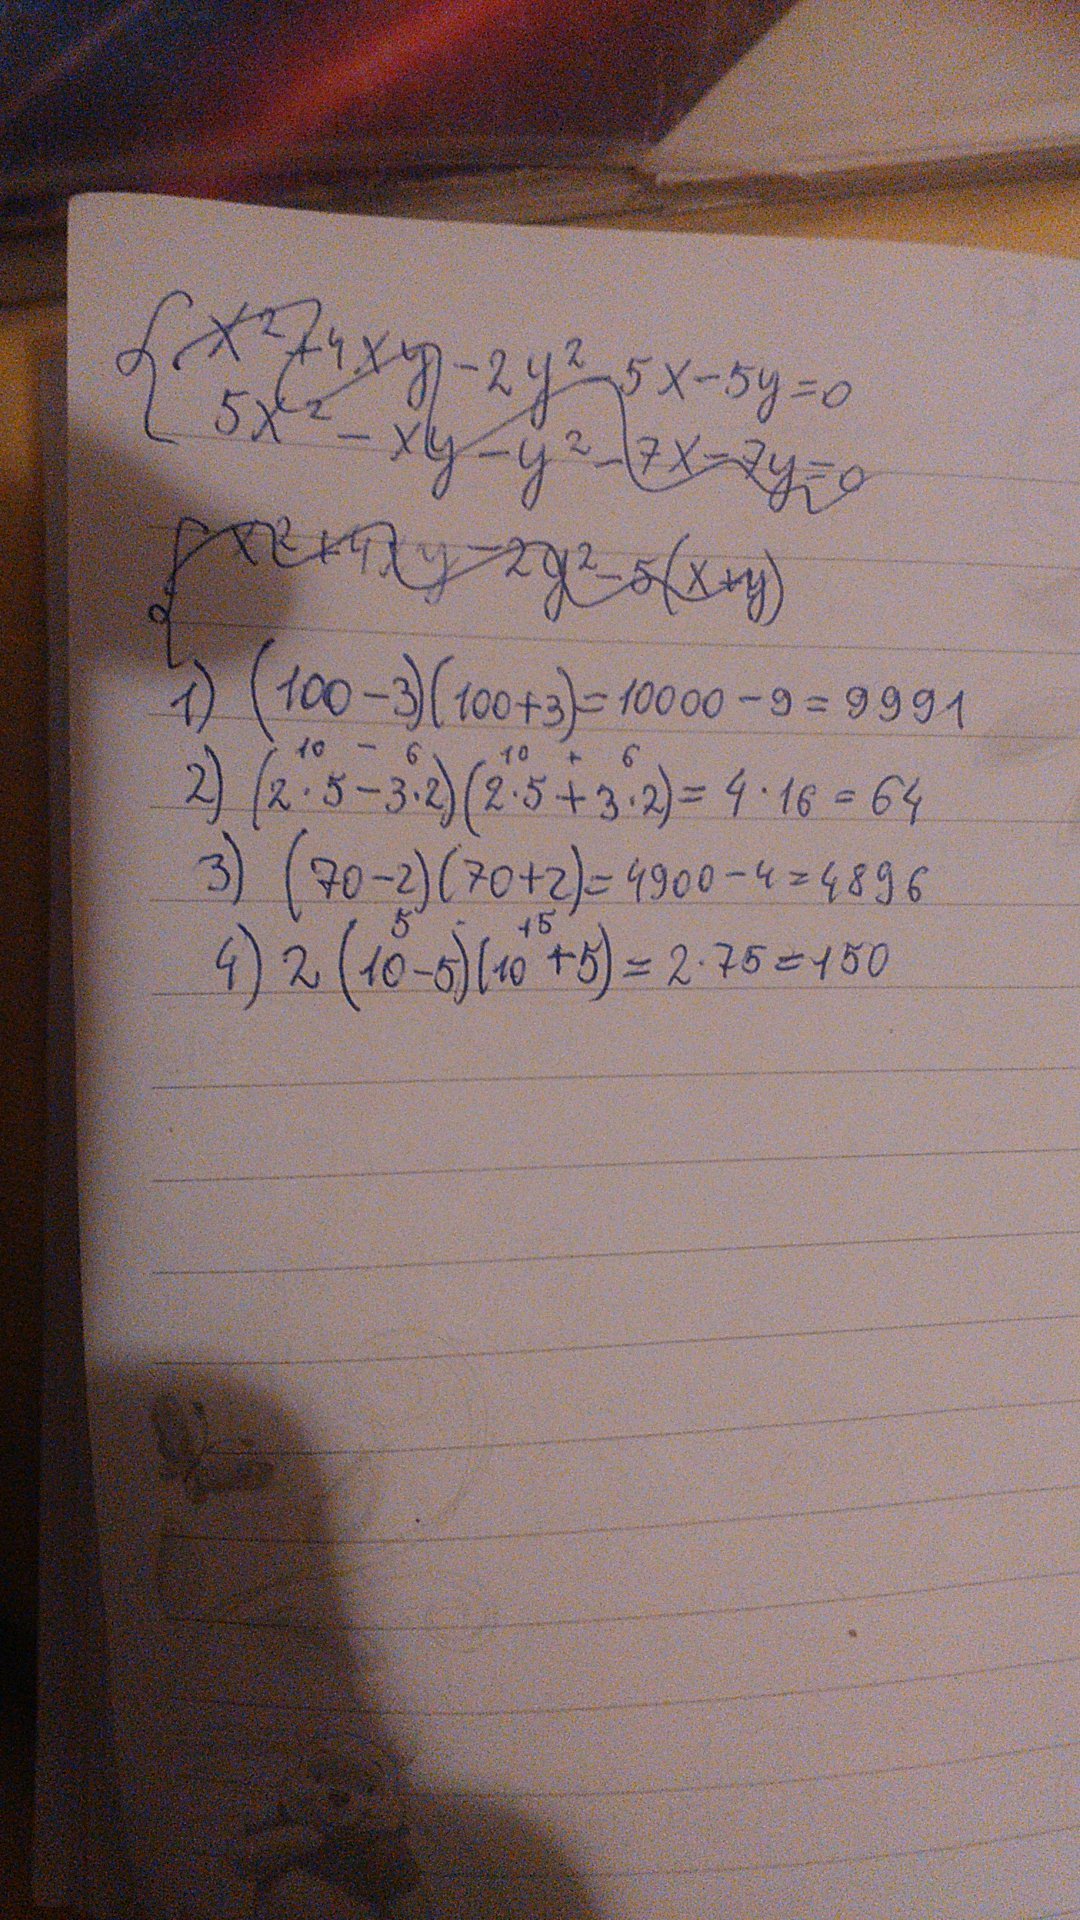 { x² + 4xy - 2y² - 5x - 5y = 0
5x² - xy - y² - 7x - 7y = 0
{ x² + 4xy - 2y² - 5(x+y)
1) (100-3)(100+3) = 10000 - 9 = 9991
10 - 6 10 + 6
2) (2·5-3·2)(2·5+3·2) = 4·16 = 64
3) (70-2)(70+2) = 4900 - 4 = 4896
5 · 15
4) 2(10-5)(10+5) = 2·75 = 150